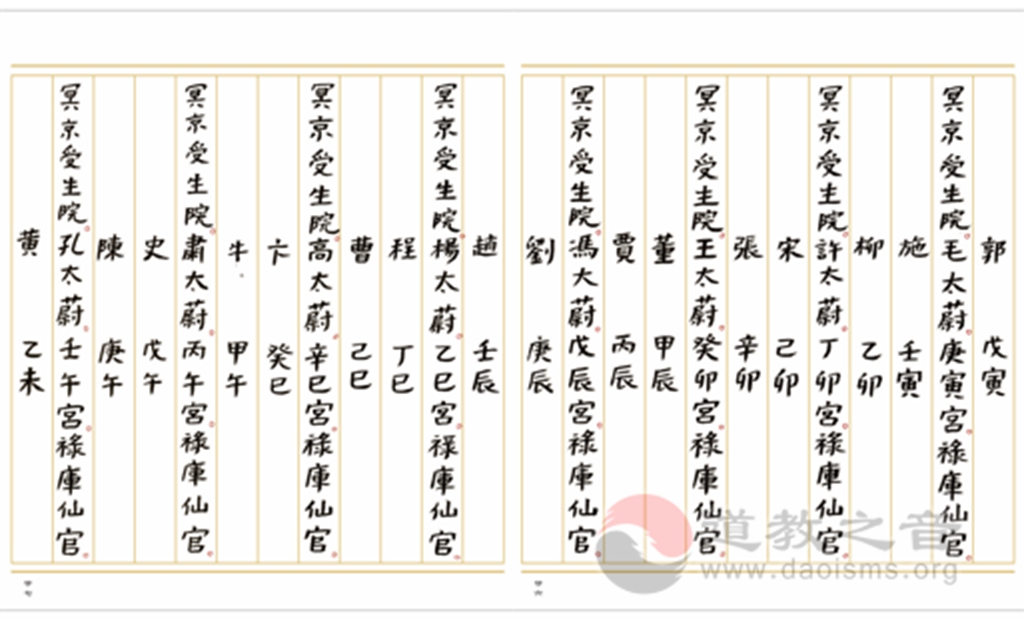 郭 戊寅
冥京受生院毛太蔚庚寅宮祿庫仙官
施 壬寅
柳 乙卯
冥京受生院許太蔚丁卯宮祿庫仙官
宋 己卯
張 辛卯
冥京受生院王太蔚癸卯宮祿庫仙官
董 甲辰
賈 丙辰
冥京受生院馮大蔚戊辰宮祿庫仙官
劉 庚辰
趙 壬辰
冥京受生院楊太蔚乙巳宮祿庫仙官
程 丁巳
曹 己巳
冥京受生院高太蔚辛巳宮祿庫仙官
卞 癸巳
牛 甲午
冥京受生院肅大蔚丙午宮祿庫仙官
史 戊午
陳 庚午
冥京受生院孔太蔚壬午宮祿庫仙官
黄 乙未
道教之音
www.daoisms.org